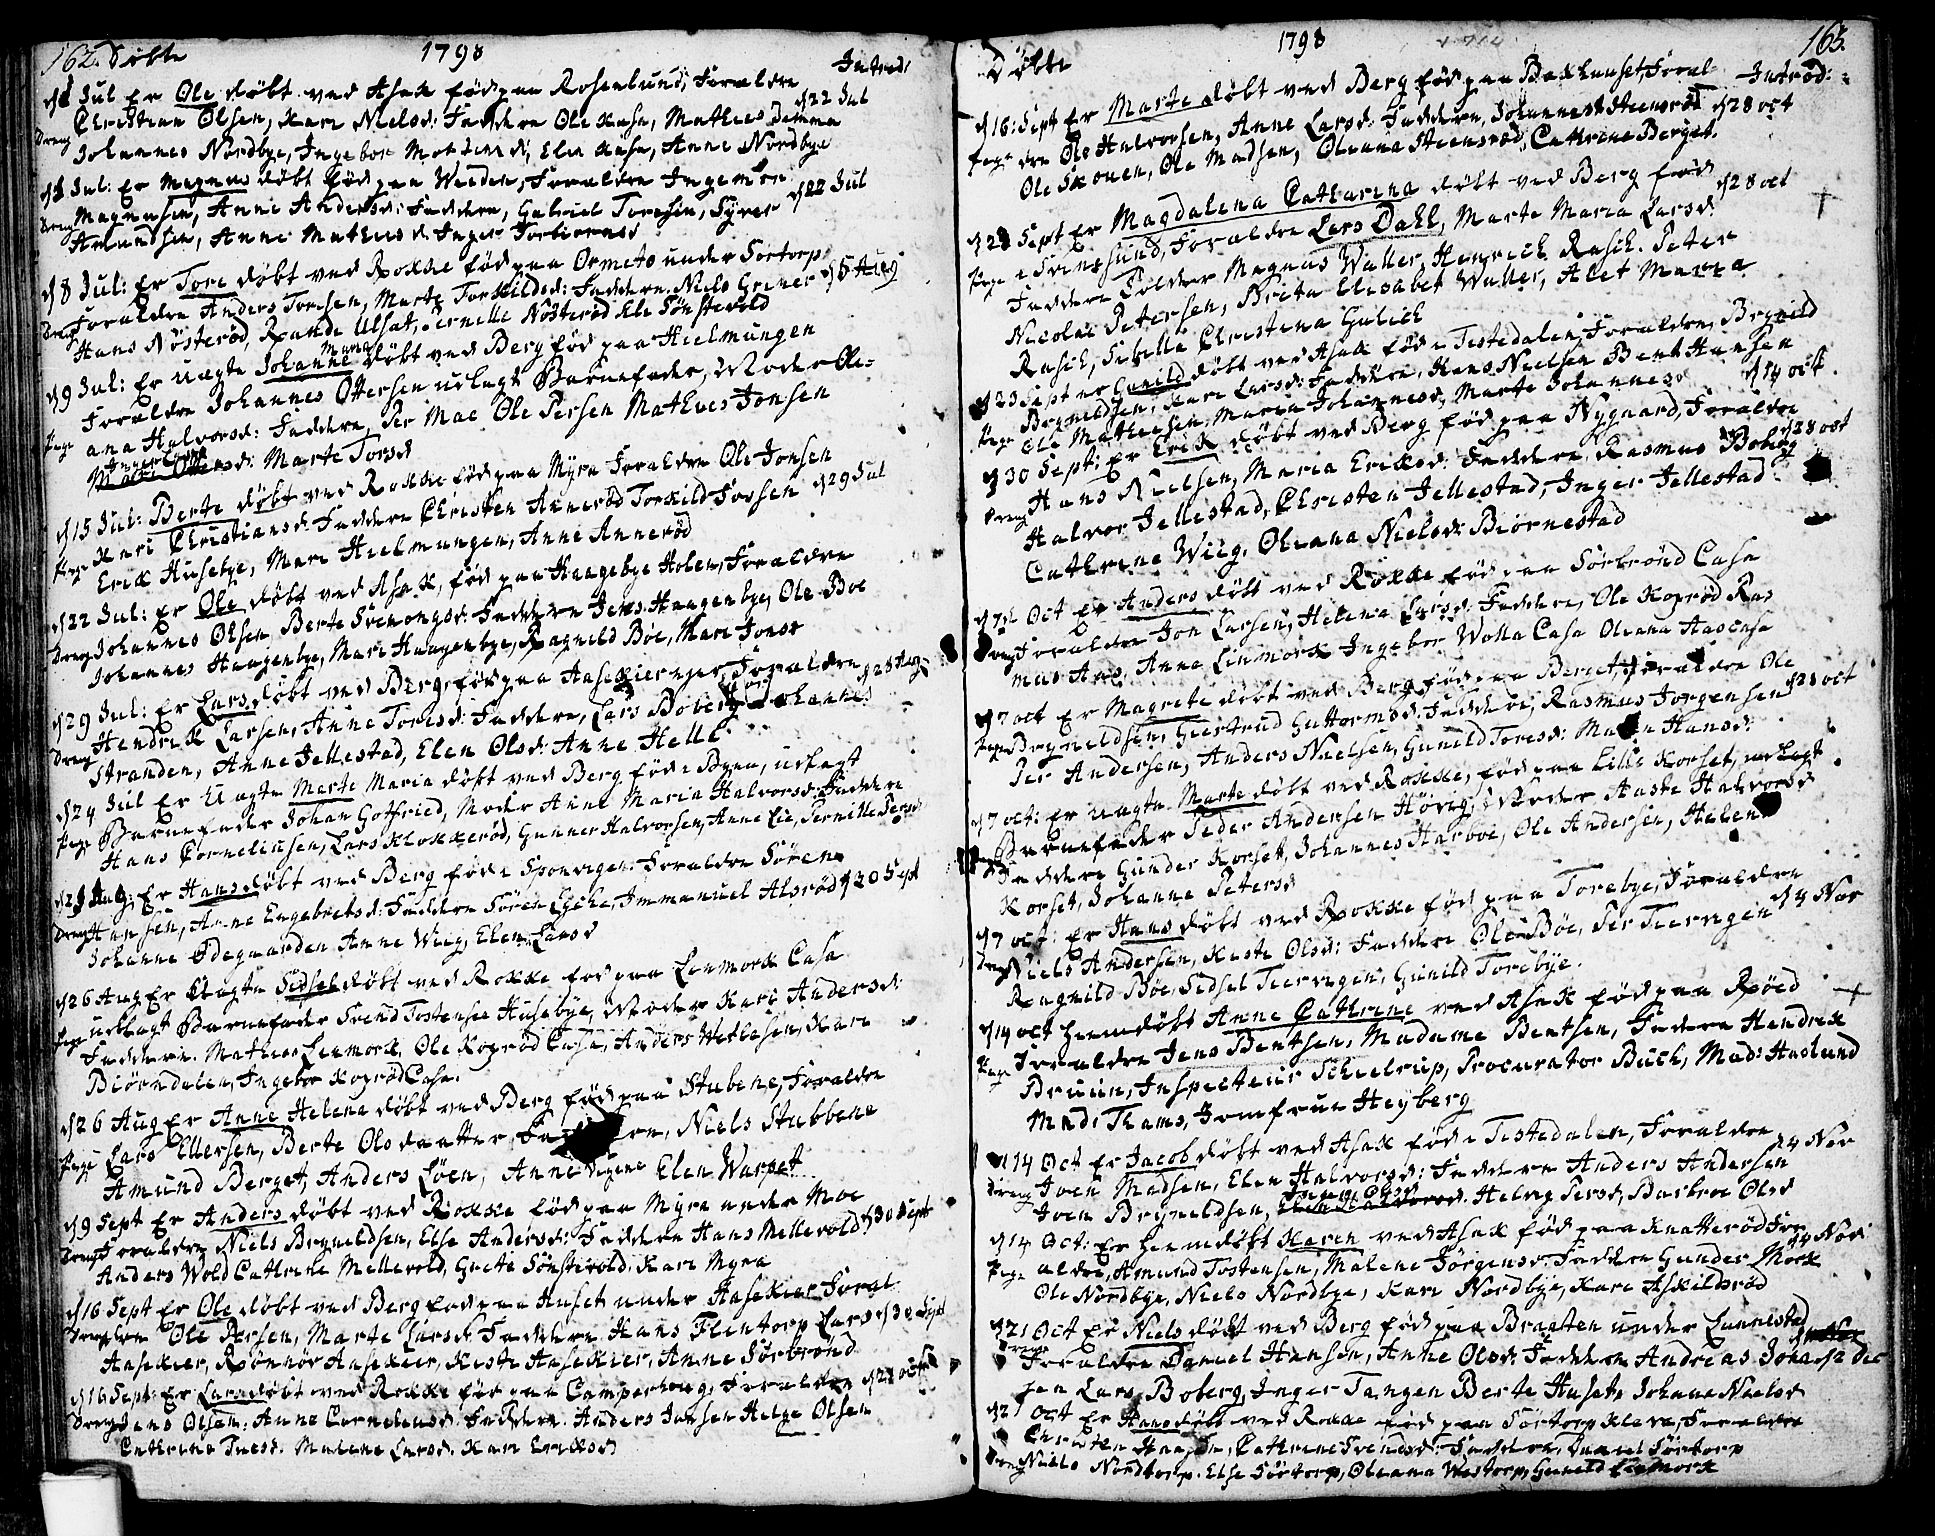 162. Döbte 1798 Introd:
d 1 Jul Er Ole döbt ved Asak föd paa Rosenlund, Forældre
Christian Olsen, Kari Nielsd: Faddere Ole Kasa, Mathies Damma d 22 Jul
Dreng Johannes Nordbye, Ingebor Mortensd, Elen Kasa, Anne Nordbye
Jul: Er Magnus döbt föd paa Weeden, Forældre Ingemon
Magnusen, Anne Andersd: Faddere, Gabriel Toresen, Syver d 22 Jul
Dreng Amundsen, Anne Mathiesd. Inger Torbiornsd
d 8 Jul: Er Tore döbt ved Rokke föd paa Ormeto under Sortorp
Forældre Anders Toresen, Marte Torkildsd: Faddere. Niels Grimer d 5 Aug
Dreng Hans Nösteröd, Rande Ulsat, Pernille Nösteröd Ele Sönstevold
d 9 Jul: Er uægte Johanne Maria döbt ved Berg föd paa Hielmungen
Forældre Johannes Ottersen udlagt Barnefader, Moder Ole-
Pige ana Halvorsd: Faddere, Per Moe Ole Persen Mathies Jonsen
Marte Toresd
d 15 Jul: Berte döbt ved Rokke föd paa Myra Forældre Ole Jonsen
Kari Christiansd: Faddere Christen Anneröd Torkild Torsen d 29 Jul
Pige Erik Husebye, Mari Hielmungen, Anne Anneröd
d 22 Jul: Er Ole döbt ved Asak, föd paa Haagebye Holen, Forældre
Dreng Johannes Olsen Berte Svenongsd: Faddere Jens Haagenbye, Ole Boe
Johannes Haagenbye, Mari Haagenbye, Ragnild Böe, Mari Jonsd
d 29 Jul: Er Lars döbt ved Berg, föd paa Aasekiernger, Forældre
Hendrik Larsen, Anne Toresd: Faddere, Lars Boberg Johannes
Dreng Stranden, Anne Jellestad, Elen Olsd: Anne Helle
d 24 Jul Er Uægte Marte Maria döbt ved Berg föd i Byen, udlagt
Pige Barnefader Johan Gotfried, Moder Anne Maria Halvorsd: Faddere
Hans Corneliusen, Lars Klokkeröd, Gunner Halvorsen, Anne Lie, Pernille Persd
Aug: Er Hans döbt ved Berg föd i Sponvigen: Forældre Sören
Dreng Hansen, Anne Engebretsd: Faddere Sören Lyche, Immanuel Alsröd d 30 Sept
Johanne Ödegaarden Anne Wiig, Elen Larsd
d 26 Aug Er Uægte Sidsel döbt ved Rokke föd paa Lenmork Casa
Pige udlagt Barnefader Svend Tostensen Husebye, Moder Kari Andersd:
Faddere. Mathies Lenmork, Ole Kopröd Casa, Anders Wetlesen, Kari
Biörndalen, Ingebor Kopröd Casa.
d 26 Aug Er Anne Helena döbt ved Berg föd paa Stubene, Forældre
Pige Lars Ellersen, Berte Olsdaatter, Faddere, Niels Stubbene
Amund Berget, Anders Löen, Anne Vigene Elen Warpet
d 9 Sept Er Anders döbt ved Rokke föd paa Myra under Moe
Dreng Forældre Niels Brynildsen, Else Andersd: Faddere Hans Mellevold d 30 Sept
Anders Wold Cathrine Mellevold, Grete Sönstevold, Kari Myra
d 16 Sept Er Ole döbt ved Berg föd paa Huset under Aasekier Foræl-
Dreng dre Ole Persen, Marte Larsd: Faddere. Hans Flentorp Lars d 30 Sept
Aasekier, Rönnov Aasekier, Kiste Aasekier, Anne Sörbrönd
d 16 Sept: Er Lars döbt ved Rokke föd paa Camperhaug, Forældre d 21 oct
Dreng Jens Olsen: Anne Cornelusd: Faddere. Anders Jonsen Helge Olsen
Cathrine Persd. Malene Larsd. Kari Eriksd
Döbte 1798 163. Introd:
d 16: Sept Er Marte döbt ved Berg föd paa Bakhuuset, Foræl-
Pige dre Ole Halvorsen, Anne Larsd: Faddere, Johannes Steensröd d 28 oct
Ole Skouen, Ole Madsen, Oleana Steensröd, Cathrine Berget.
d 23 Sept Er Magdalena Catharina döbt ved Berg föd
Pige i Svinesund, Forældre Lars Dahl, Marte Maria Larsd: d 28 oct
Faddere Tolder Magnus Waller, Henrich Rasch. Peter
Nicolai Petersen, Brita Elisabet Waller, Alet Maria
Rasch, Sibille Christena Gulich
d 23 Sept er Gunild döbt ved Asak föd i Tistedalen, Forældre, Brynild
Brynildsen, Kari Larsd: Faddere, Hans Nielsen Bent Hansen
Pige Ole Mathiesen, Maria Johannesd, Marte Johannesd d 14 oct
d 30 Sept: Er Erik döbt ved Berg föd paa Nygaard, Forældre
Hans Nielsen, Maria Eriksd: Faddere, Rasmus Boberg d 28 oct
Dreng Halvor Jellestad, Christen Jellestad, Inger Jellestad
Cathrine Wiig, Oleana Nielsd: Biörnestad
d 7 Oct Er Anders döbt ved Rokke föd paa Sörbrönd Casa
Dreng Forældre Jon Larsen, Helena Larsd: Faddere, Ole Kopröd Ras
mus Anne Lenmork Ingebor Wolla Casa Oleana
d 7 oct Er Magrete döbt ved Berg föd paa Berget, Forældre Ole
Pige Brynildsen, Giertrud Guttormsd: Faddere, Rasmus Jorgensen d 28 oct
Per Andersen, Anders Nielsen, Gunild Toresd: Maren Hansd:
d 7 oct: Er uægte Marte döbt ved Rokke, föd paa Lille Korset, udlagt
Pige Barnefader Peder Andersen Hövig, Moder Aaste Halvorsd
Faddere Gunder Korset, Johannes Harboe, Ole Andersen, Helene
Korset, Johanne Petersd
d 7 oct: Er Hans döbt ved Rokke föd paa Torebye, Forældre
Dreng Niels Andersen, Kiste Olsd: Faddere Ole Böe, Per Tiervigen d 4 Nov
Ragnild Böe, Sidsel Tiervigen, Gunild Torebye.
d 14 oct hiemdöbt Anne Cathrine ved Asak föd paa Röed
Pige Forældre Jens Bentsen, Madame Bentsen, Faddere Hendrik
Bruun, Inspecteur Schielrup, Procurator Buch, Mad: Haslund
Mad: Thams, Jomfrue Heyberg
d 14 Oct Er Jacob döbt ved Asak föd i Tistedalen, Forældre
Dreng Joen Madsen, Elen Halvorsd: Faddere Anders Andersen d 4 Nov
Joen Brynildsen, Helvig Persd, Barbroe Olsd
d 14 Oct: Er hiemdöbt Karen ved Asak föd paa Knatteröd For
Pige ældre, Amund Tostensen, Malene Jörgensd: Faddere Gunder Mork d 4 Nov
Ole Nordbye, Niels Nordbye, Kari Nordbye, Kari Askildsröd
d 21 Oct Er Niels döbt ved Berg föd paa Braaten under Lunnestad
Dreng Forældre Daniel Hansen, Anne Olsd: Faddere Andreas Johan d 2 Dec
sen Lars Boberg, Inger Tangen Berte Husets Johane Nielsd
d 21 oct Er Hans döbt ved Rokke föd paa Sörtorp Kleva, Forældre
Christen Haagen, Cathrine Svendsd: Faddere, Svend Sörtorp
Dreng Niels Nordtorp. Else Sörtorp, Oleana Westorp, Gunild Lenmork